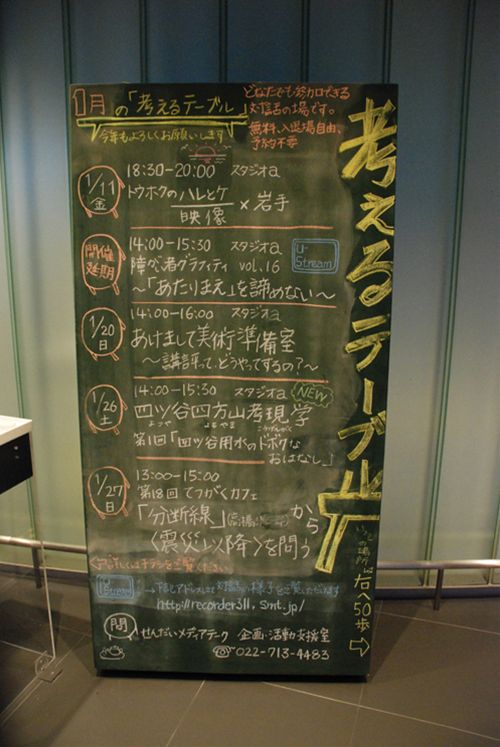 1月の「考えるテーブル」
今年もよろしくお願いします
どなたでも参加できる
対話の場です。
無料、入退場自由、
予約不要
考えるテーブル
1/11
金
18:30-20:00 スタジオa
トウホクのハレとケ
映像
×岩手
開催
延期
14:00-15:30 スタジオa
U-
Stream
障がい者グラフィティ vol.16
〜「あたりまえ」を諦めない〜
1/20
日
14:00-16:00 スタジオa
あけまして美術準備室
〜講評って、どうやってするの?〜
1/26
土
14:00-15:30 スタジオa
NEW
四ツ谷四方山考現学
よつや よもやま こうげんがく
第1回「四ツ谷用水のドボクな
おはなし」
1/27
日
13:00-15:00
第18回 てつがくカフェ
「分断線」から
〈震災以降〉を問う
詳しくはチラシをご覧ください
U-Stream
→下記アドレスにて対話の様子をご覧いただけます
http://recorder311.smt.jp/
いつもの場所は
右へ50歩
問
せんだいメディアテーク 企画・活動支援室
☎022-713-4483